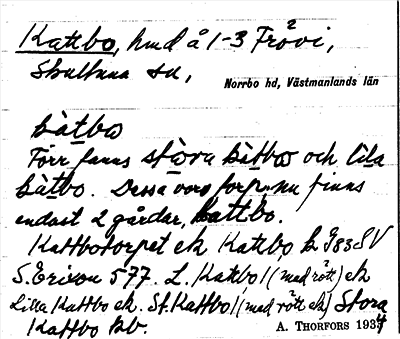 Kattbo, hmd å 1-3 Frövi,
Skultuna sn,
Norrbo hd, Västmanlands län
kàtbo
Förr fanns stora kàtbo och lìla
kàtbo. Dessa voro förr, nu finns
endast 2 gårdar, kattbo.
Kattbotorpet ek Kattbo k J83SV
S. Erixon 577. L. Kattbo/(med rött) ek
Lilla Kattbo ek. St. Kattbo/(med rött ek) Stora
Kattbo kb.
A. THORFORS 1934